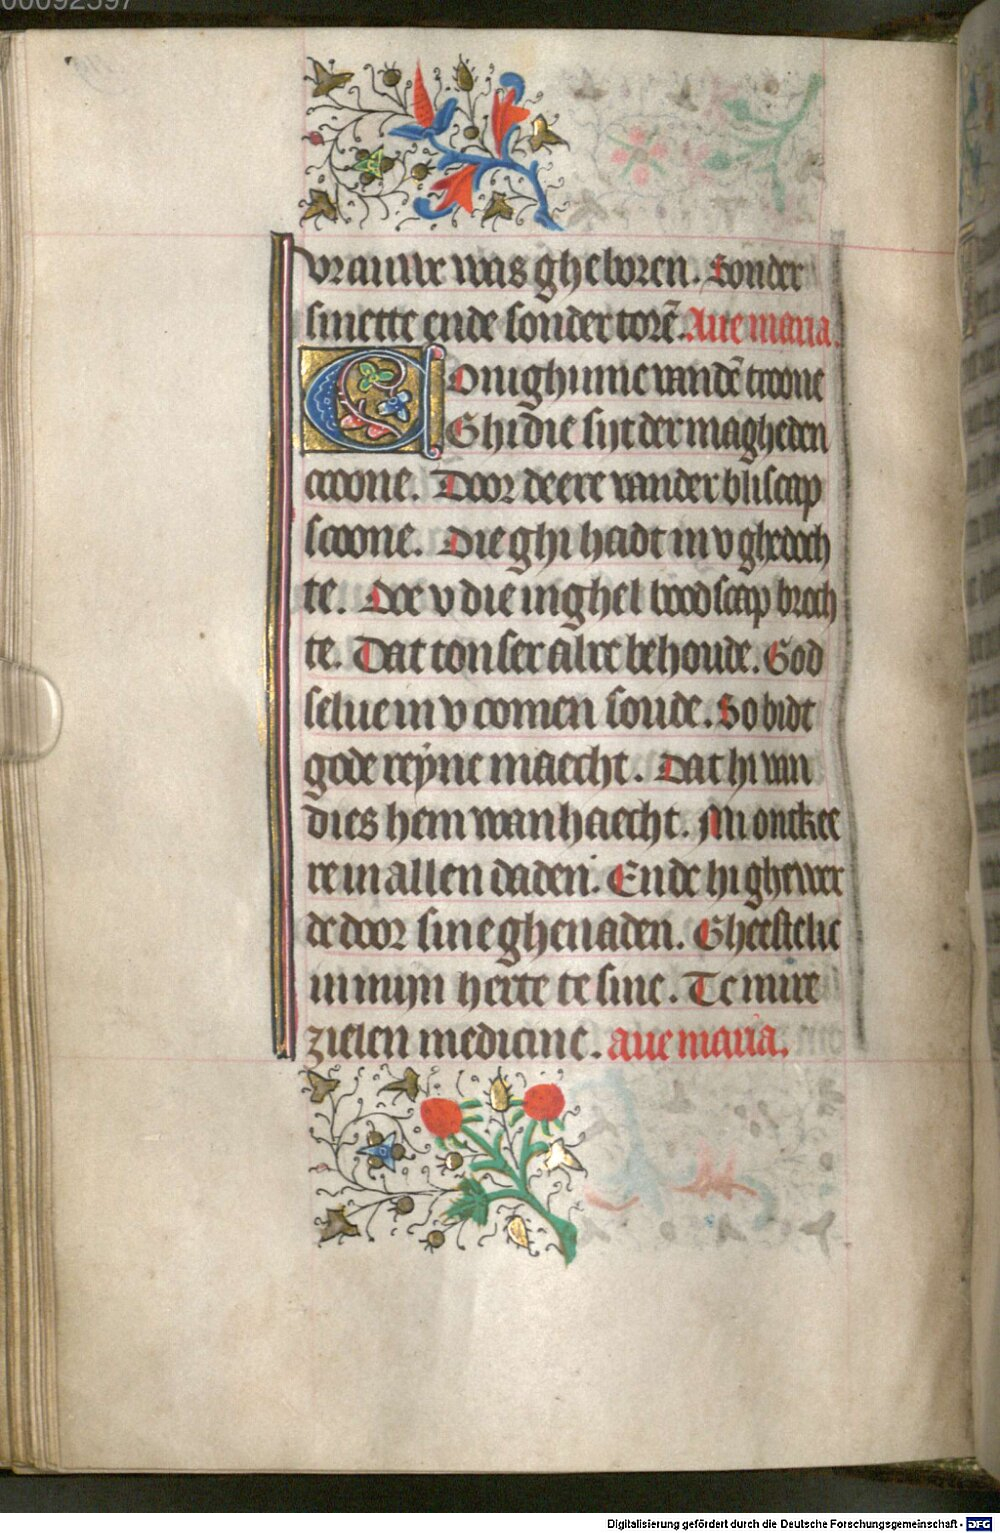 00092597
vrauwe was gheboren. Sonder
smette ende sonder torē. Aue maria.
Conighinne vandē troone
Ghi die sijt der magheden
croone. Door deere vander bliscap
scoone. Die ghi hadt in v ghedoch
te. Doe v die inghel boodscap broch
te. Dat tonser alre behoude. God
selue in v comen soude. So bidt
gode reyne maecht. Dat hi van
dies hem wanhaecht. Mi ontkee
re in allen daden. Ende hi ghewer
de door sine ghenaden. Gheestelic
in mijn herte te sine. Te mire
zielen medicine. aue maria.
Digitalisierung gefördert durch die Deutsche Forschungsgemeinschaft - DFG